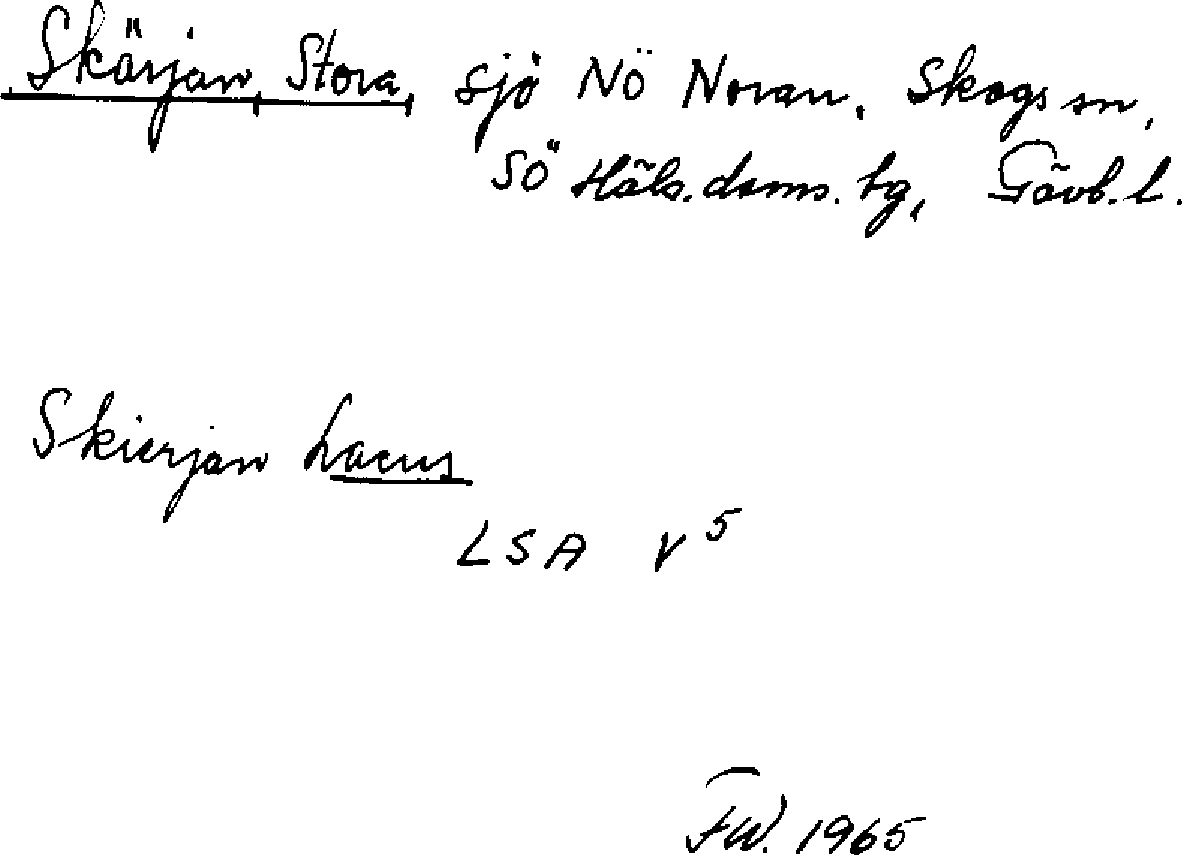 Skärjan, Stora, sjö NÖ Noran, Skogs sn,
SÖ Häls. doms. tg, Gävb. l.
Skierjan Lacus
LSA V 5
FW. 1965